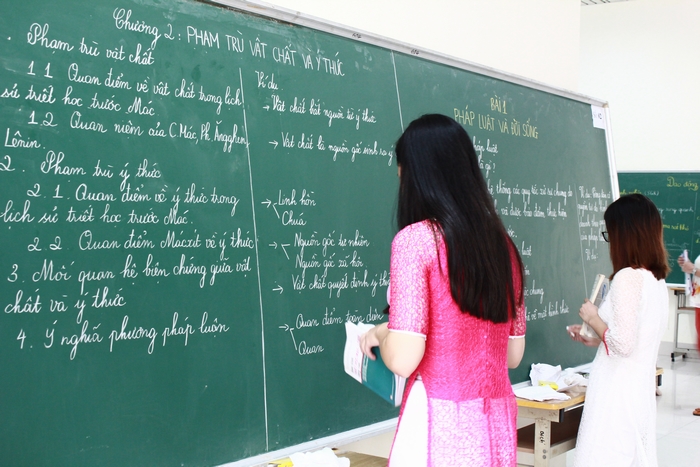 Chương 2 : PHẠM TRÙ VẬT CHẤT VÀ Ý THỨC
. Phạm trù vật chất
1.1 Quan điểm về vật chất trong lịch
sử triết học trước Mác
1.2. Quan niệm của C.Mác, Ph. Ăngghen,
Lênin.
2. Phạm trù ý thức
2.1. Quan điểm về ý thức trong
lịch sử triết học trước Mác.
2.2 Quan điểm Macxit về ý thức
3. Mối quan hệ biện chứng giữa vật
chất và ý thức
4. Ý nghĩa phương pháp luận
Ví dụ
→ Vật chất bắt nguồn từ ý thức
→ Vật chất là nguồn gốc sinh ra ý
→ Linh hồn
Chúa
→ Nguồn gốc tự nhiên
Nguồn gốc xã hội
→ Vật chất quyết định ý thức
→ Quan điểm toàn diện
Quan
BÀI 1
PHÁP LUẬT VÀ ĐỜI SỐNG
pháp luật
là gì ?
hệ thống các quy tắc xử sự chung do
và được bảo đảm thực hiện
chung
về mặt hình thức